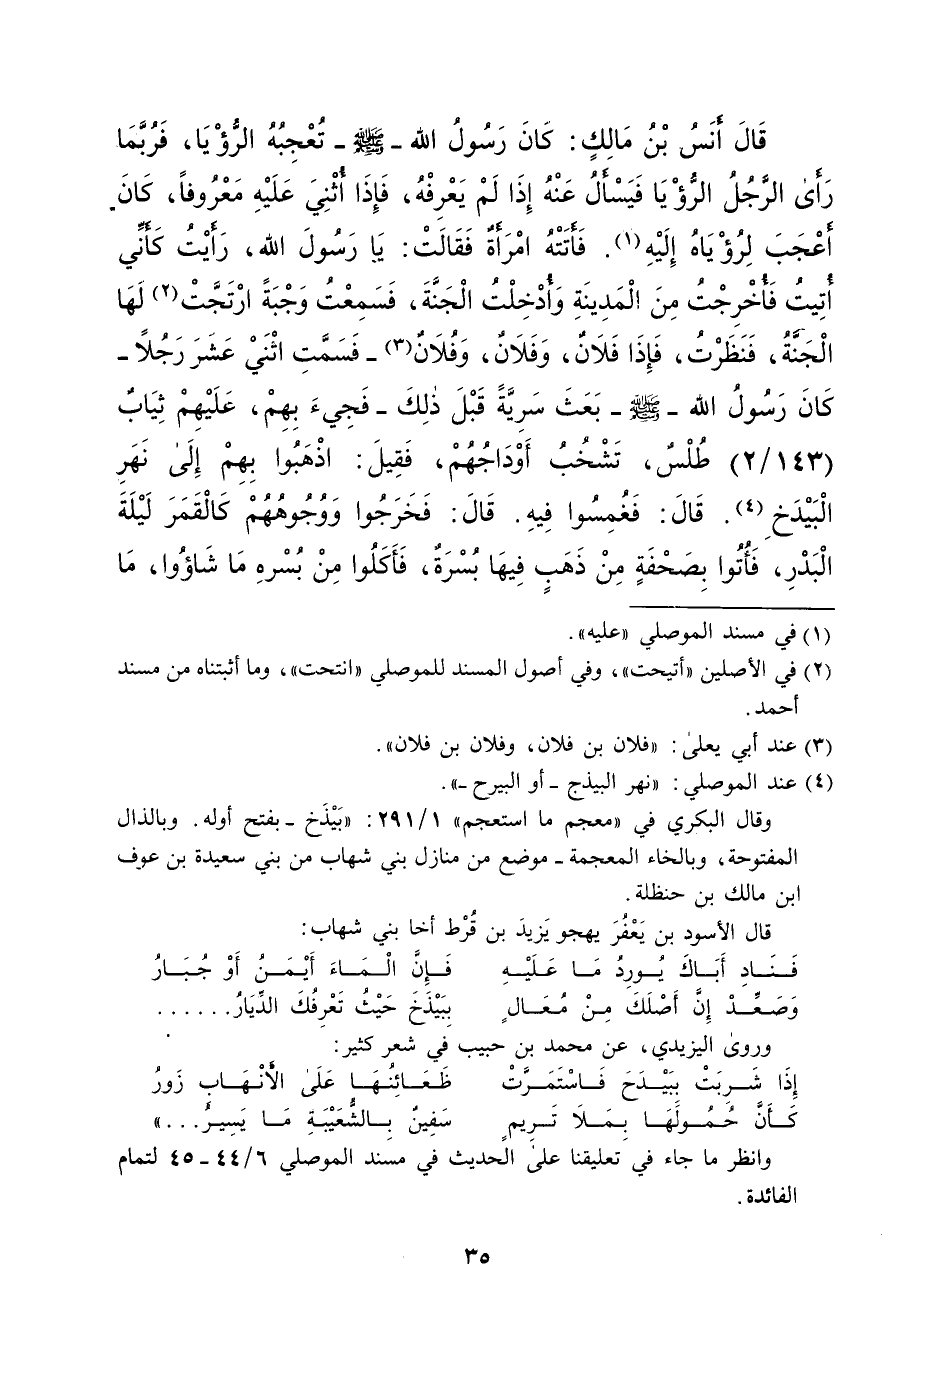 قَالَ أَنَسُ بْنُ مَالِكٍ: كَانَ رَسُولُ الله ـ ﷺ ـ تُعْجِبُهُ الرُّؤْيَا، فَرُبَّمَا
رَأَىٰ الرَّجُلُ الرُّؤْيَا فَيَسْأَلُ عَنْهُ إِذَا لَمْ يَعْرِفْهُ، فَإِذَا أُثْنِيَ عَلَيْهِ مَعْرُوفاً، كَانَ
أَعْجَبَ لِرُؤْيَاهُ إِلَيْهِ(١). فَأَتَتْهُ امْرَأَةٌ فَقَالَتْ: يَا رَسُولَ الله، رَأَيْتُ كَأَنِّي
أُتِيتُ فَأُخْرِجْتُ مِنَ الْمَدِينَةِ وَأُدْخِلْتُ الْجَنَّةَ، فَسَمِعْتُ وَجْبَةً ارْتَجَّتْ(٢) لَهَا
الْجَنَّةُ، فَنَظَرْتُ، فَإِذَا فَلَانٌ، وَفَلَانٌ، وَفُلَانٌ(٣) ـ فَسَمَّتِ اثْنَيْ عَشَرَ رَجُلاً ـ
كَانَ رَسُولُ الله ـ ﷺ ـ بَعَثَ سَرِيَّةً قَبْلَ ذٰلِكَ ـ فَجِيءَ بِهِمْ، عَلَيْهِمْ ثِيَابٌ
(٢/١٤٣) طُلْسٌ، تَشْخُبُ أَوْدَاجُهُمْ، فَقِيلَ: اذْهَبُوا بِهِمْ إِلَىٰ نَهَرِ
الْبَيْدَخِ(٤). قَالَ: فَغُمِسُوا فِيهِ. قَالَ: فَخَرَجُوا وَوُجُوهُهُمْ كَالْقَمَرَ لَيْلَةَ
الْبَدْرِ، فَأُتُوا بِصَحْفَةٍ مِنْ ذَهَبٍ فِيهَا بُسْرَةٌ، فَأَكَلُوا مِنْ بُسْرِهِ مَا شَاؤُوا، مَا
(١) في مسند الموصلي «عليه».
(٢) في الأصلين «أتيحت»، وفي أصول المسند للموصلي «انتحت»، وما أثبتناه من مسند
أحمد.
(٣) عند أبي يعلىٰ: «فلان بن فلان، وفلان بن فلان».
(٤) عند الموصلي: «نهر البيذج ـ أو البيرح ـ».
وقال البكري في «معجم ما استعجم» ٢٩١/١: «بَيْذَخ ـ بفتح أوله. وبالذال
المفتوحة، وبالخاء المعجمة ـ موضع من منازل بني شهاب من بني سعيدة بن عوف
ابن مالك بن حنظلة.
قال الأسود بن يَعْفُرَ يهجو يَزِيدَ بن قُرْط أخا بني شهاب:
فَنَادِ أَبَاكَ يُورِدُ مَا عَلَيْهِ فَإِنَّ الْمَاءَ أَيْمَنُ أَوْ جُبَارُ
وَصَعِّدْ إِنَّ أَصْلَكَ مِنْ مُعَالٍ بِبَيْذَخَ حَيْثُ تَعْرِفُكَ الدِّيَارُ......
وروىٰ اليزيدي، عن محمد بن حبيب في شعر كثير:
إِذَا شَرِبَتْ بِبَيْدَحَ فَاسْتَمَرَّتْ ظَعَائِنُهَا عَلَىٰ الأَنْهَابِ زَورُ
كَأَنَّ حُمُولَهَا بِمَلَا تَرِيمٍ سَفِينٌ بِالشُّعَيْبَةِ مَا يَسِيرُ...»
وانظر ما جاء في تعليقنا علىٰ الحديث في مسند الموصلي ٤٤/٦ ـ ٤٥ لتمام
الفائدة.
٣٥